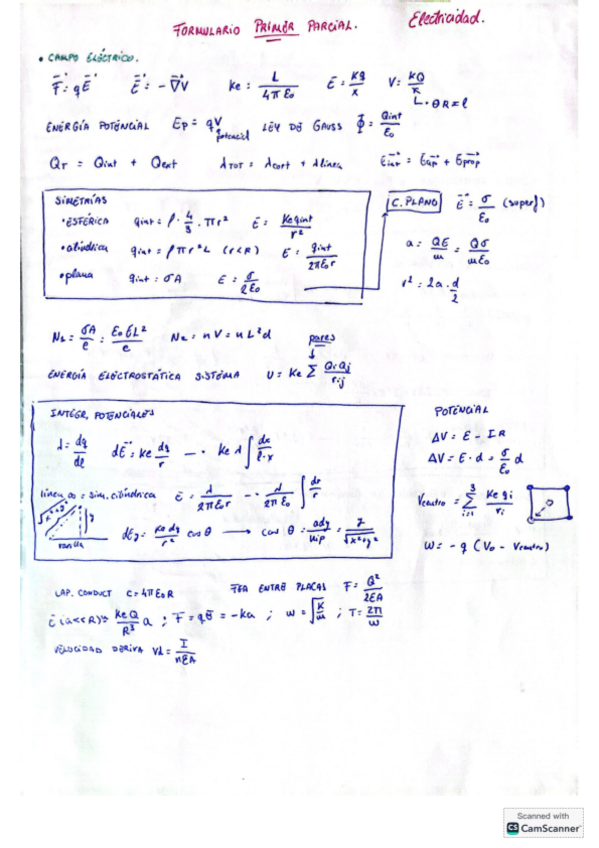 FORMULARIO PRIMER PARCIAL. Electricidad.
• CAMPO ELÉCTRICO.
F⃗ = qE⃗   E⃗ = -∇⃗V   Ke = L/4πε₀   E = Kq/r   V = KQ/r
L = θR = l
ENERGÍA POTENCIAL   Ep = qV potencial   LEY DE GAUSS   Φ⃗ = Qint/ε₀
QT = Qint + Qext   λTOT = λcort + λlinea
SIMETRÍAS
• ESFÉRICA   qint = ρ · 4/3 · πr²   E = Ke qint/r²
• cilíndrica   qint = ρπr²L (r<R)   E = qint/2πε₀r
• plana   qint = σA   E = σ/2ε₀
C. PLANO   E⃗ = σ/ε₀ (superf)
a = QE/m = Qσ/mε₀
r² = 2a · d/2
= σA/e = ε₀EL²/e   = nV = nL²d   pares
ENERGÍA ELECTROSTÁTICA SISTEMA   U = Ke Σ QiQj/rij
INTEGR. POTENCIALES
λ = dq/dl   dE⃗ = Ke dq/r   Ke λ ∫ dx/l·x
línea ∞ = sim. cilíndrica   E = λ/2πε₀r   λ/2πε₀ ∫ dr/r
dEy = Ke dq/r² cos θ → cos θ = ady/hip = y/√x²+y²
POTENCIAL
ΔV = E - IR
ΔV = E · d = σ/ε₀ d
Vcentro = Σ 3 i=1 Ke qi/ri
W = -q (V₀ - Vcentro)
CAP. CONDUCT   C = 4πε₀R   FZA ENTRE PLACAS   F = Q²/2EA
E (a<<R) KeQ/R³ a ; F = qE = -Ka ; w = √K/m ; T = 2π/w
VELOCIDAD DERIVA   Vd = I/nEA
Scanned with
CS CamScanner